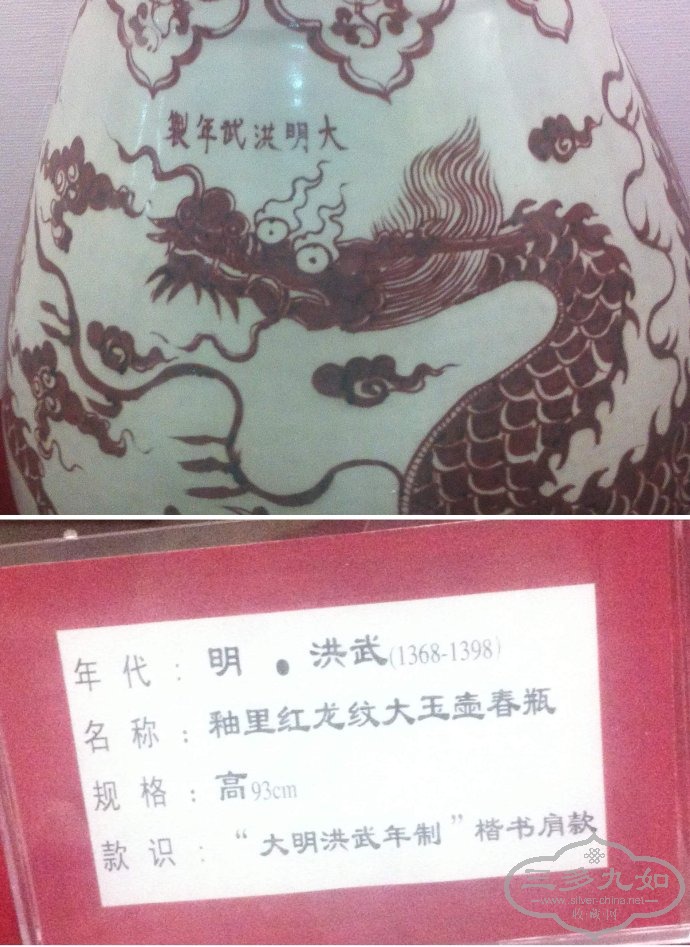 製年武洪明大
年代：明 • 洪武(1368-1398)
名称：釉里红龙纹大玉壶春瓶
规格：高93cm
款识：“大明洪武年制”楷书肩款
三多九如
www.silver-china.net
收藏网